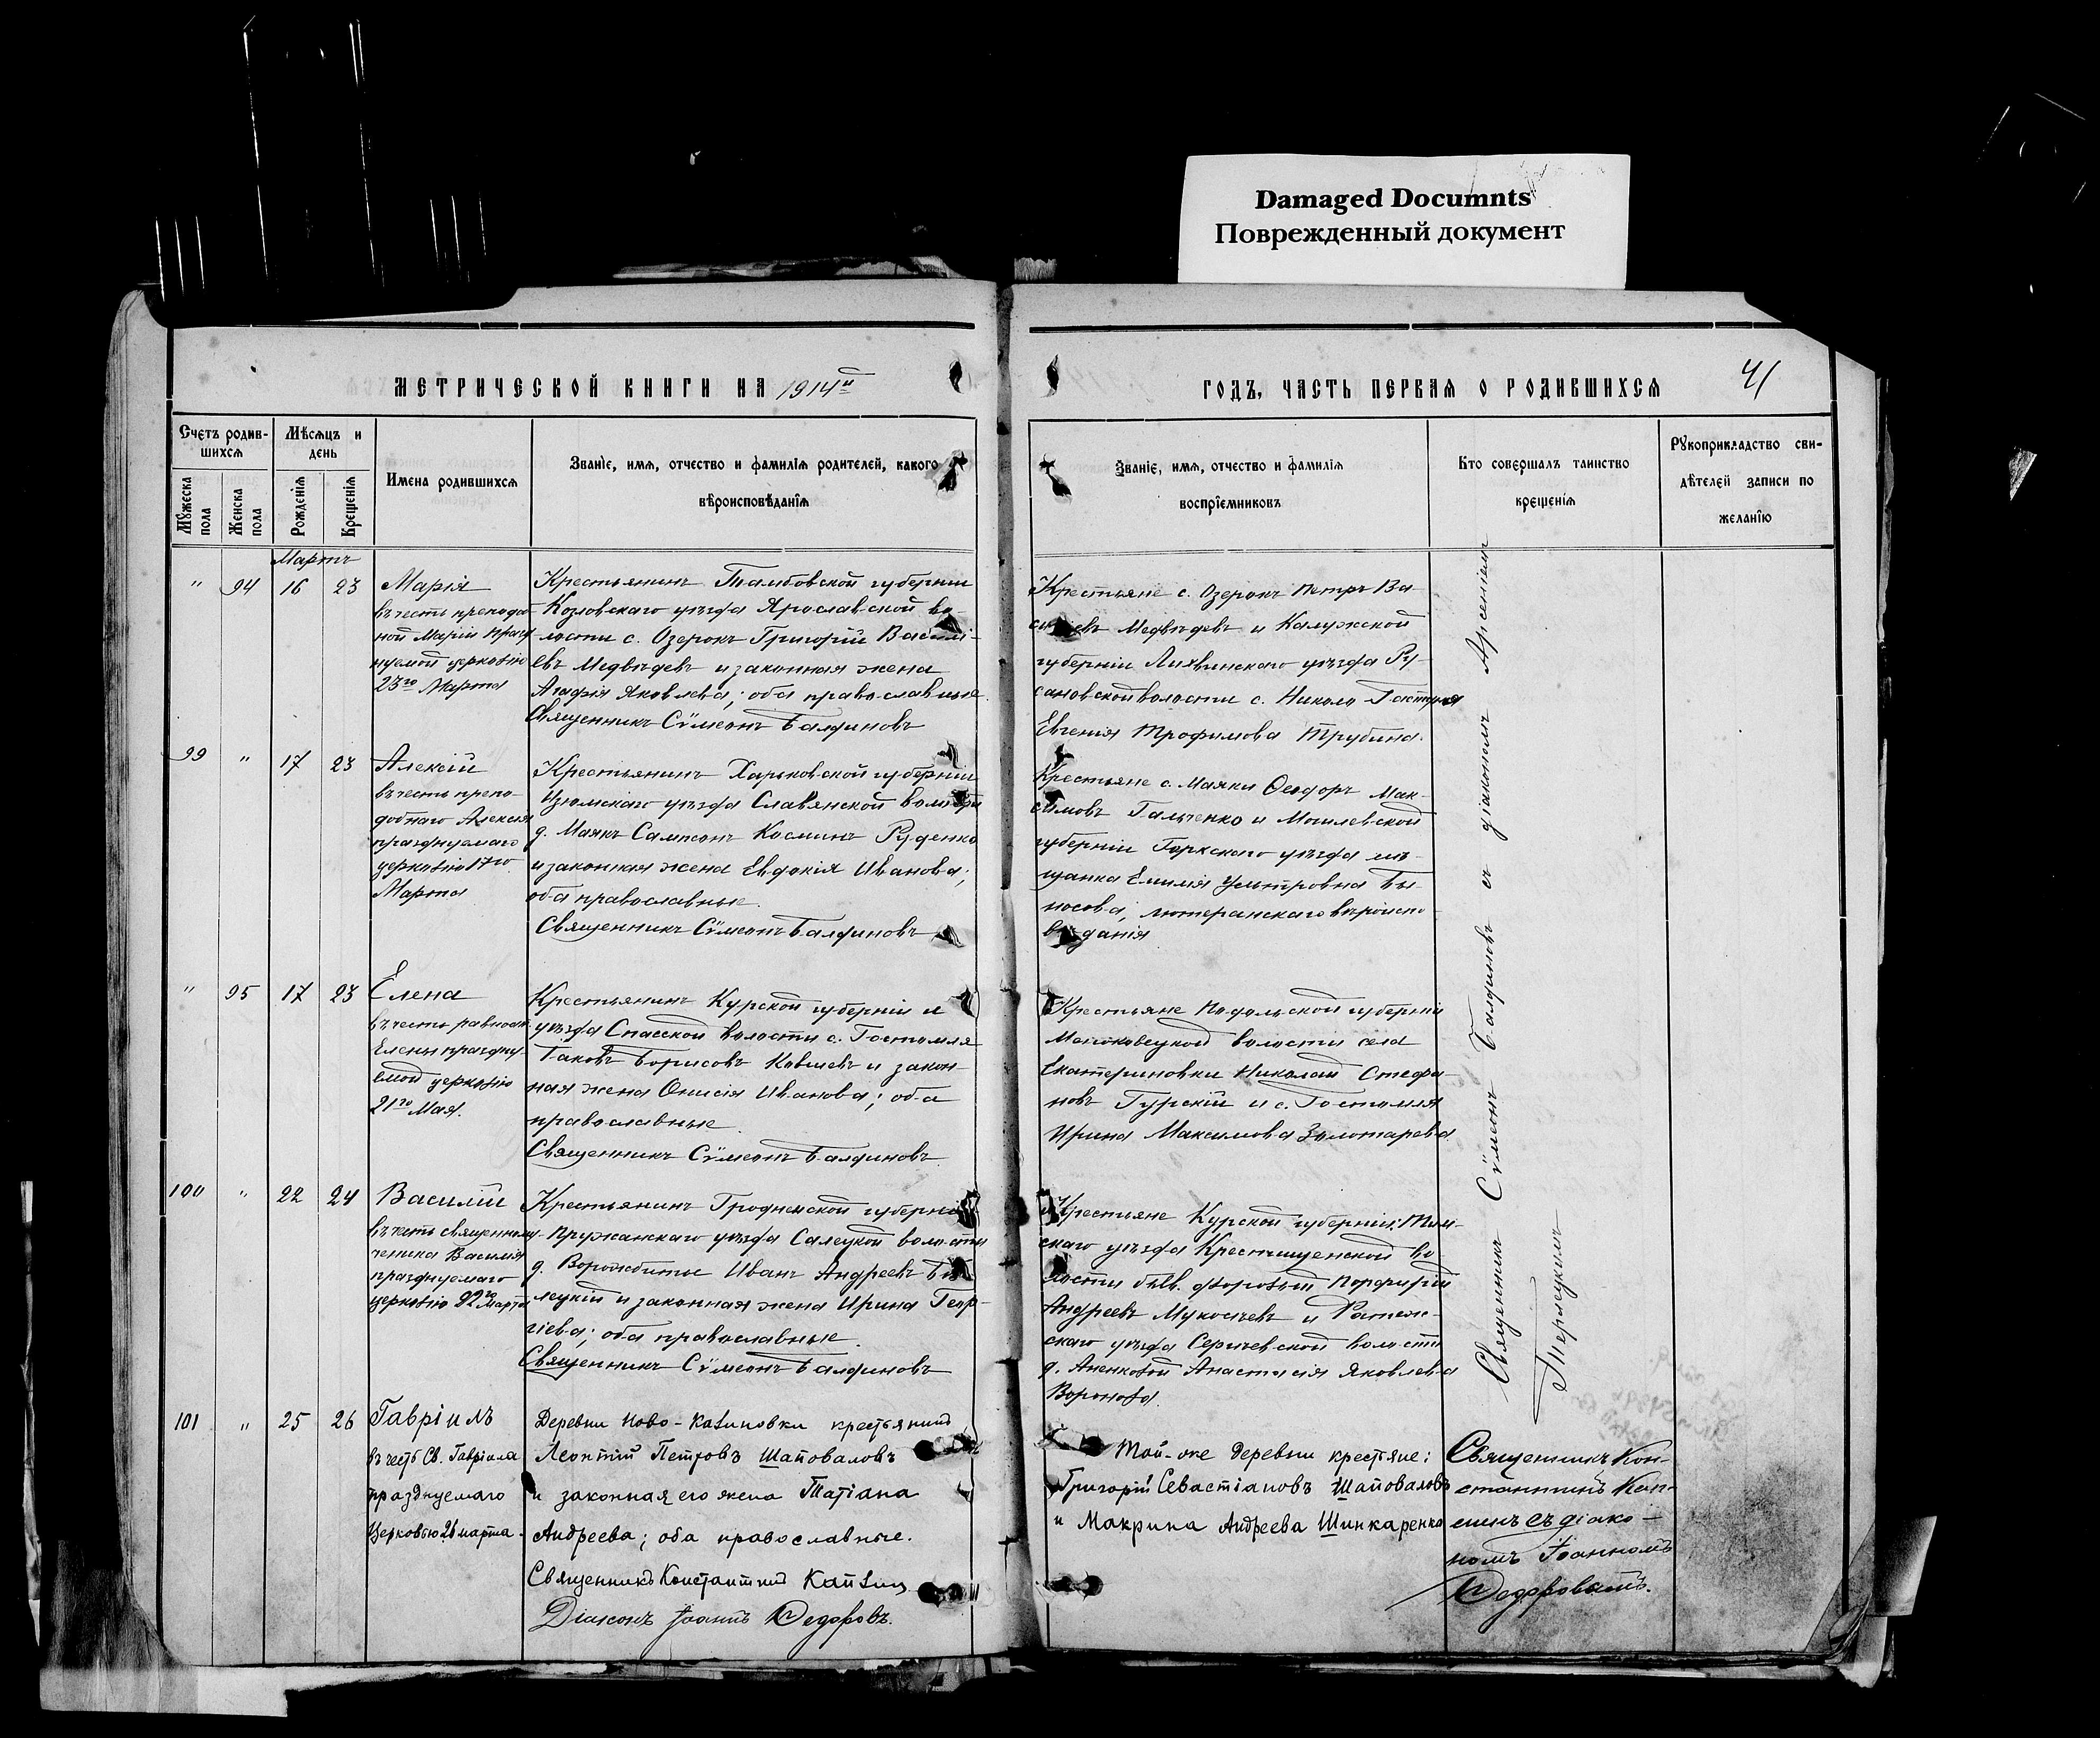 Damaged Documnts
Поврежденный документ
МЕТРИЧЕСКОЙ КНИГИ НА 1914й
ГОДЪ, ЧАСТЬ ПЕРВАЯ О РОДИВШИХСЯ
41
Счетъ родив-
шихся
Мѣсяцъ и
день
Мужеска
пола
Женска
пола
Рожденія
Крещенія
Имена родившихся
Званіе, имя, отчество и фамилія родителей, какого
вѣроисповѣданія
Званіе, имя, отчество и фамилія
воспріемниковъ
Кто совершалъ таинство
крещенія
Рукоприкладство сви-
дѣтелей записи по
желанію
Мартъ
" 94 16 23
Марія
въ честь преподоб-
ной Маріи празд
нуемой церковію
23го Марта
Крестьянинъ Тамбовской губерніи
Козловскаго уѣзда Ярославской во-
лости с. Озерокъ Григорій Василі-
евъ Медвѣдевъ и законная жена
Агафія Яковлева; оба православные
Священникъ Сѵмеонъ Балдиновъ
Крестьяне с. Озерокъ Петръ Ва-
сильевъ Медвѣдевъ и Калужской
губерніи Лихвинскаго уѣзда Ру-
сановской волости с. Николо
Евгенія Трофимова Трубина.
99 " 17 23
Алексій
въ честь препо-
добнаго Алексія
празднуемаго
церковію 17го
Марта
Крестьянинъ Харьковской губерніи
Изюмскаго уѣзда Славянской волости
д. Маякъ Сампсонъ Косминъ Руденко
и законная жена Евдокія Иванова;
оба православные.
Священникъ Сѵмеонъ Балдиновъ
Крестьяне с. Маяки Ѳеодоръ Мак-
симовъ Гальченко и Могилевской
губерніи Горкскаго уѣзда мѣ-
щанка Емилія
носова, лютеранскаго вѣроиспо-
вѣданія
" 95 17 23
Елена
въ честь равноап.
Елены праздну-
емой церковію
21го Мая.
Крестьянинъ Курской губерніи и
уѣзда Спасской волости с. Гостомля
Іаковъ Борисовъ Ковшевъ и закон-
ная жена Онисія Иванова; оба
православные.
Священникъ Сѵмеонъ Балдиновъ
Крестьяне Подольской губерніи
волости села
Екатериновки Николай Стефа-
новъ Гурскій и с. Гостомля
Ирина Максимова Золотарева
100 " 22 24
Василій
въ честь священному-
ченика Василія
празднуемаго
церковію 22го Марта
Крестьянинъ Гродненской губерніи
Пружанскаго уѣзда Салецкой волости
д. Ворожбиты Иванъ Андреевъ Бѣ-
лецкій и законная жена Ирина Геор-
гіева; оба православные.
Священникъ Сѵмеонъ Балдиновъ
Крестьяне Курской губерніи: Тим-
скаго уѣзда Крестищенской во-
лости Порфирій
Андреевъ Мукосѣевъ и
скаго уѣзда волости
д. Аненковой Анастасія Яковлева
Воронова.
Священникъ Сѵмеонъ Балдиновъ съ діакономъ Арсеніемъ
Терлецкимъ
101 " 25 26
Гавріилъ
въ честь Св. Гавріила
празднуемаго
Церковью 26 марта.
Деревни Ново-Калиновки крестьянинъ
Леонтій Петровъ Шаповаловъ
и законная его жена Татіана
Андреева; оба православные.
Священникъ Константинъ
Діаконъ Іоаннъ Федоровъ.
Той-же деревни крестяне:
Григорій Севастіановъ Шаповаловъ
и Макрина Андреева Шинкаренко
Священникъ Кон-
стантинъ
съ діако-
номъ Іоанномъ
Федоровымъ.